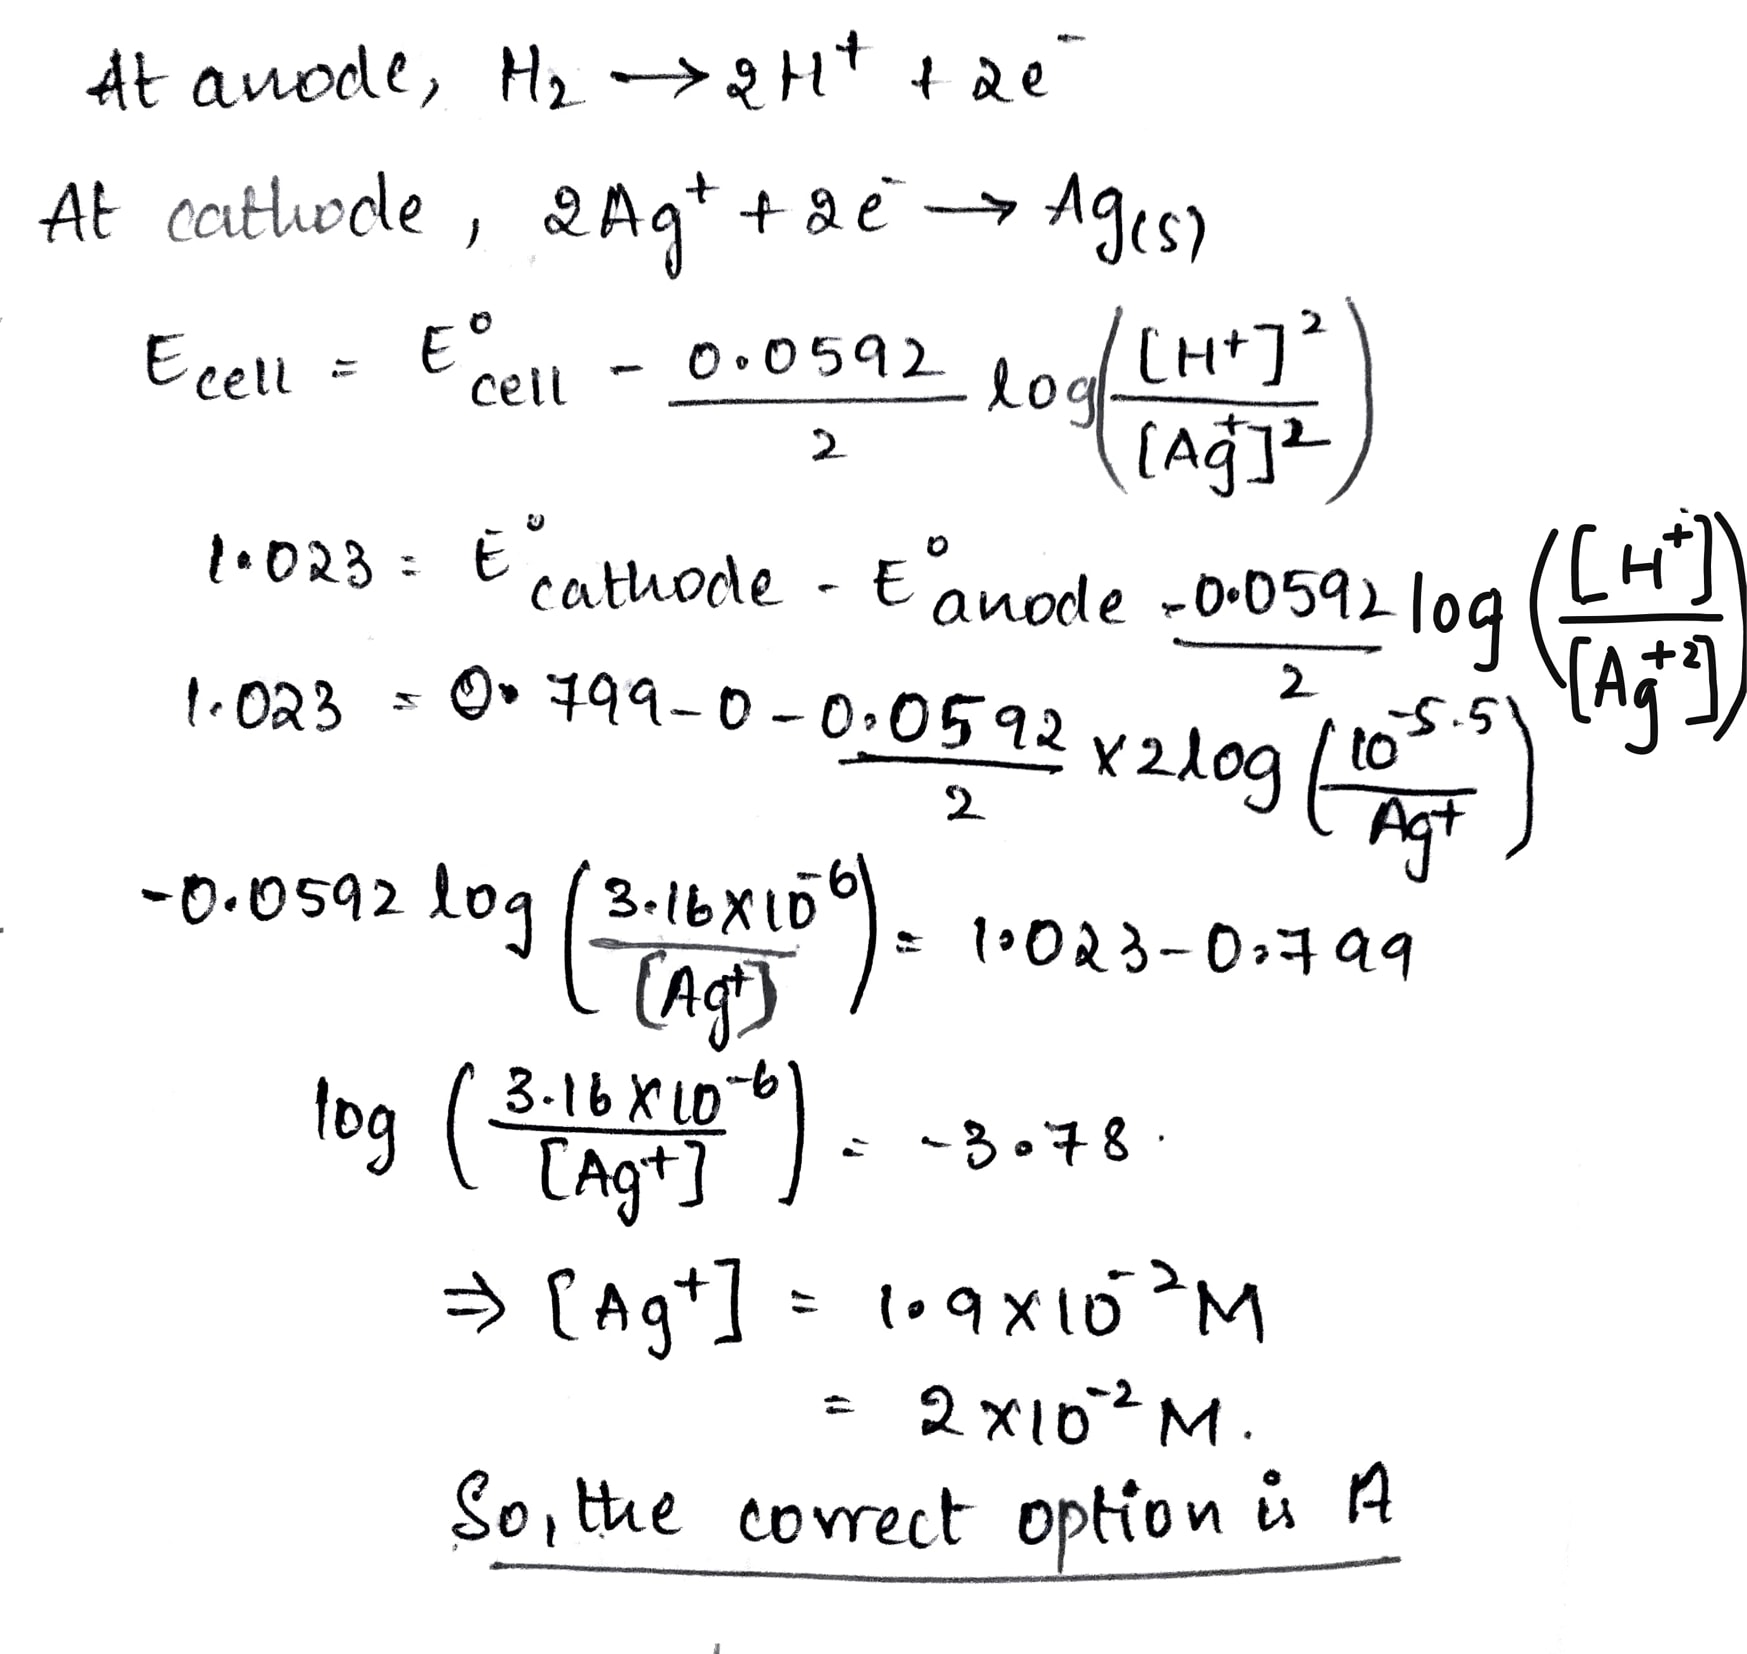 At anode, H₂ → 2H⁺ + 2e⁻
At cathode, 2Ag⁺ + 2e⁻ → Ag(s)
E cell = E° cell - 0.0592/2 log([H⁺]²/[Ag⁺]²)
1.023 = E° cathode - E° anode - 0.0592/2 log([H⁺]/[Ag⁺²])
1.023 = 0.799 - 0 - 0.0592/2 × 2log(10⁻⁵·⁵/Ag⁺)
-0.0592 log(3.16×10⁻⁶/[Ag⁺]) = 1.023-0.799
log(3.16×10⁻⁶/[Ag⁺]) = -3.78.
⇒ [Ag⁺] = 1.9×10⁻²M
= 2×10⁻²M.
So, the correct option is A